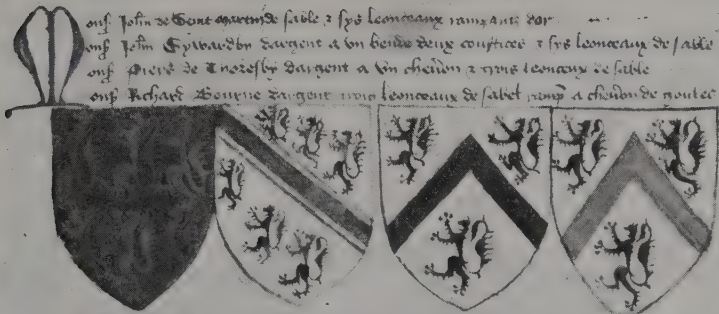 onſ John de Seint martin de sable & sys leonceaux rampantz dor
onſ John Eywardby dargent a vn bende deux cousticee & sys leonceaux de sable
onſ Piers de Thoresby dargent a vn cheuon & trois leonceux de sable
onſ Richard Bourne dargent trois leonceaux de sabel ramp a cheuon de goules